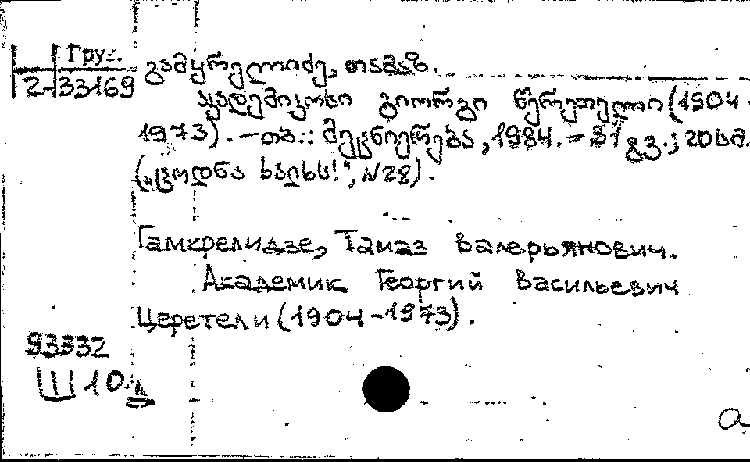 Груз.
2-33169
გამყრელიძე, თამაზ.
აკადემიკოსი გიორგი წერეთელი (1904-
1973). – თბ.: მეცნიერება, 1984. – 31 გვ.; 20 სმ.
(„ცოდნა ხალხს!", N28).
Гамкрелидзе, Тамаз Валерьянович.
Академик Георгий Васильевич
Церетели (1904-1973).
93332
Ш10
а